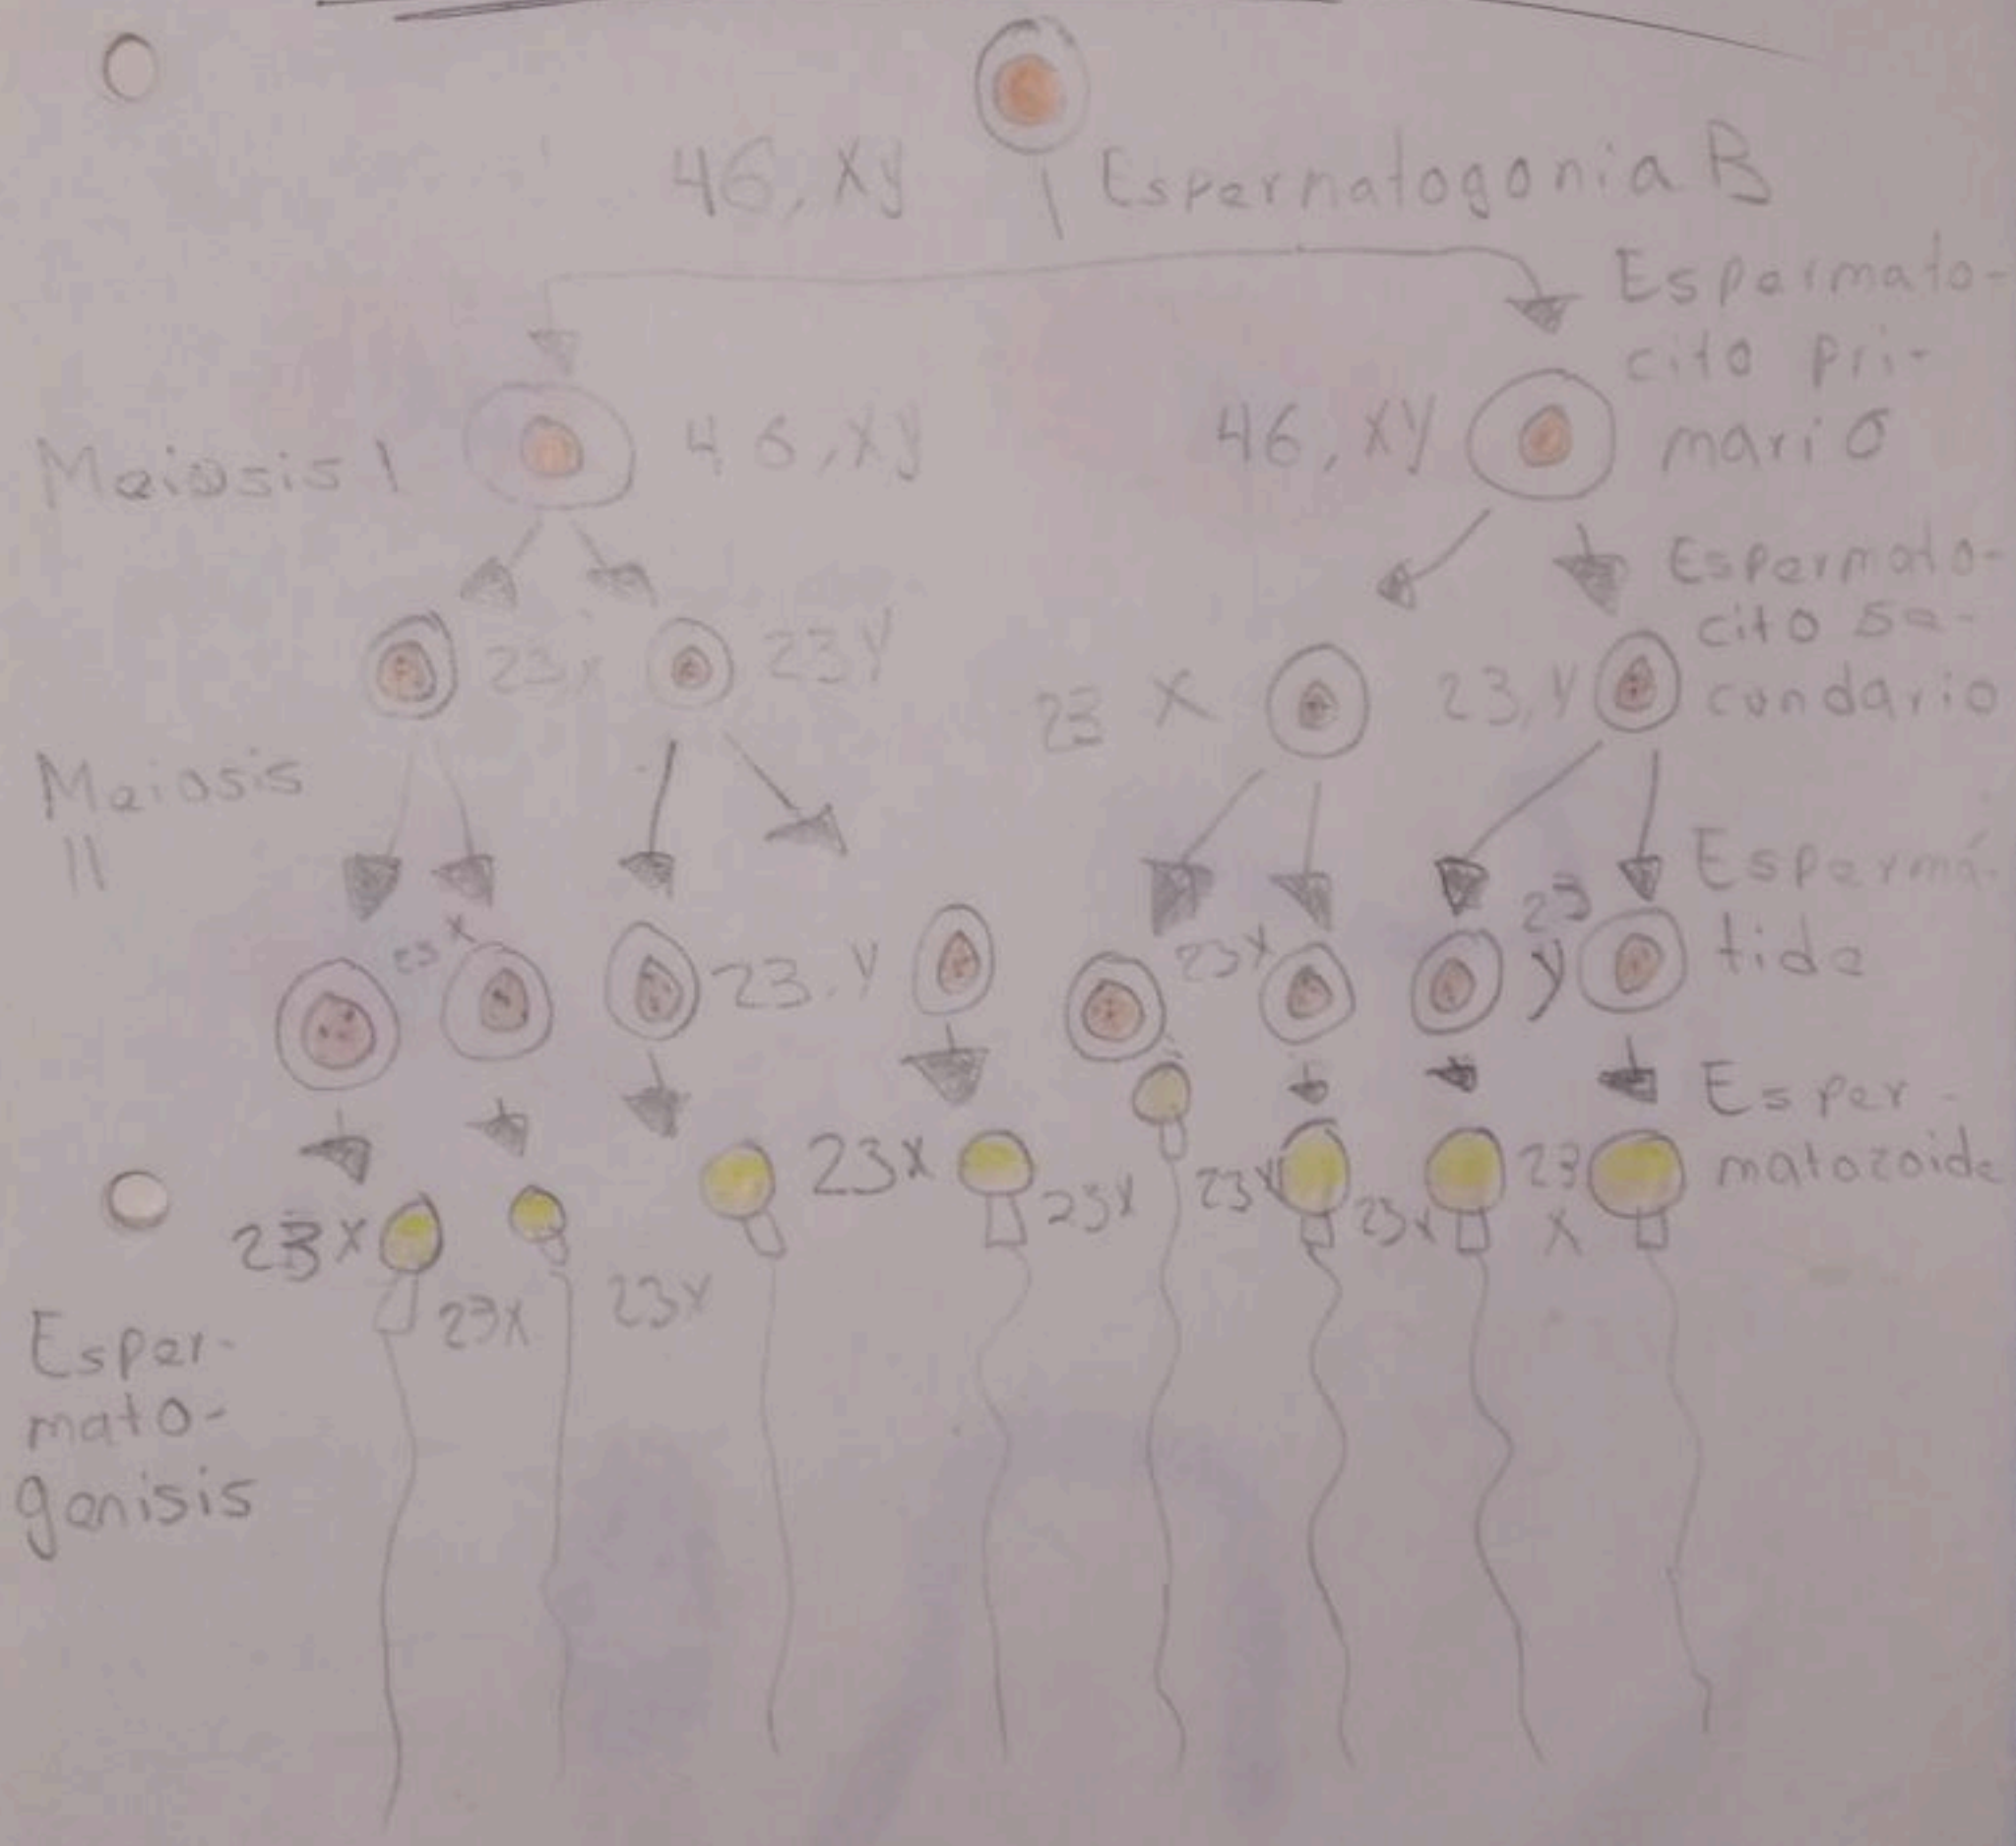 46, XY Espermatogonia B
Espermato-
cito pri-
mario
Meiosis I 46, XY 46, XY
Espermato-
cito se-
cundario
23x 23Y 23 X 23, Y
Meiosis
II
Espermá-
tide
23x 23. Y 23X 23
Y
Esper-
matozoide
23X 23X 23X 23
X
Esper-
mato-
genisis